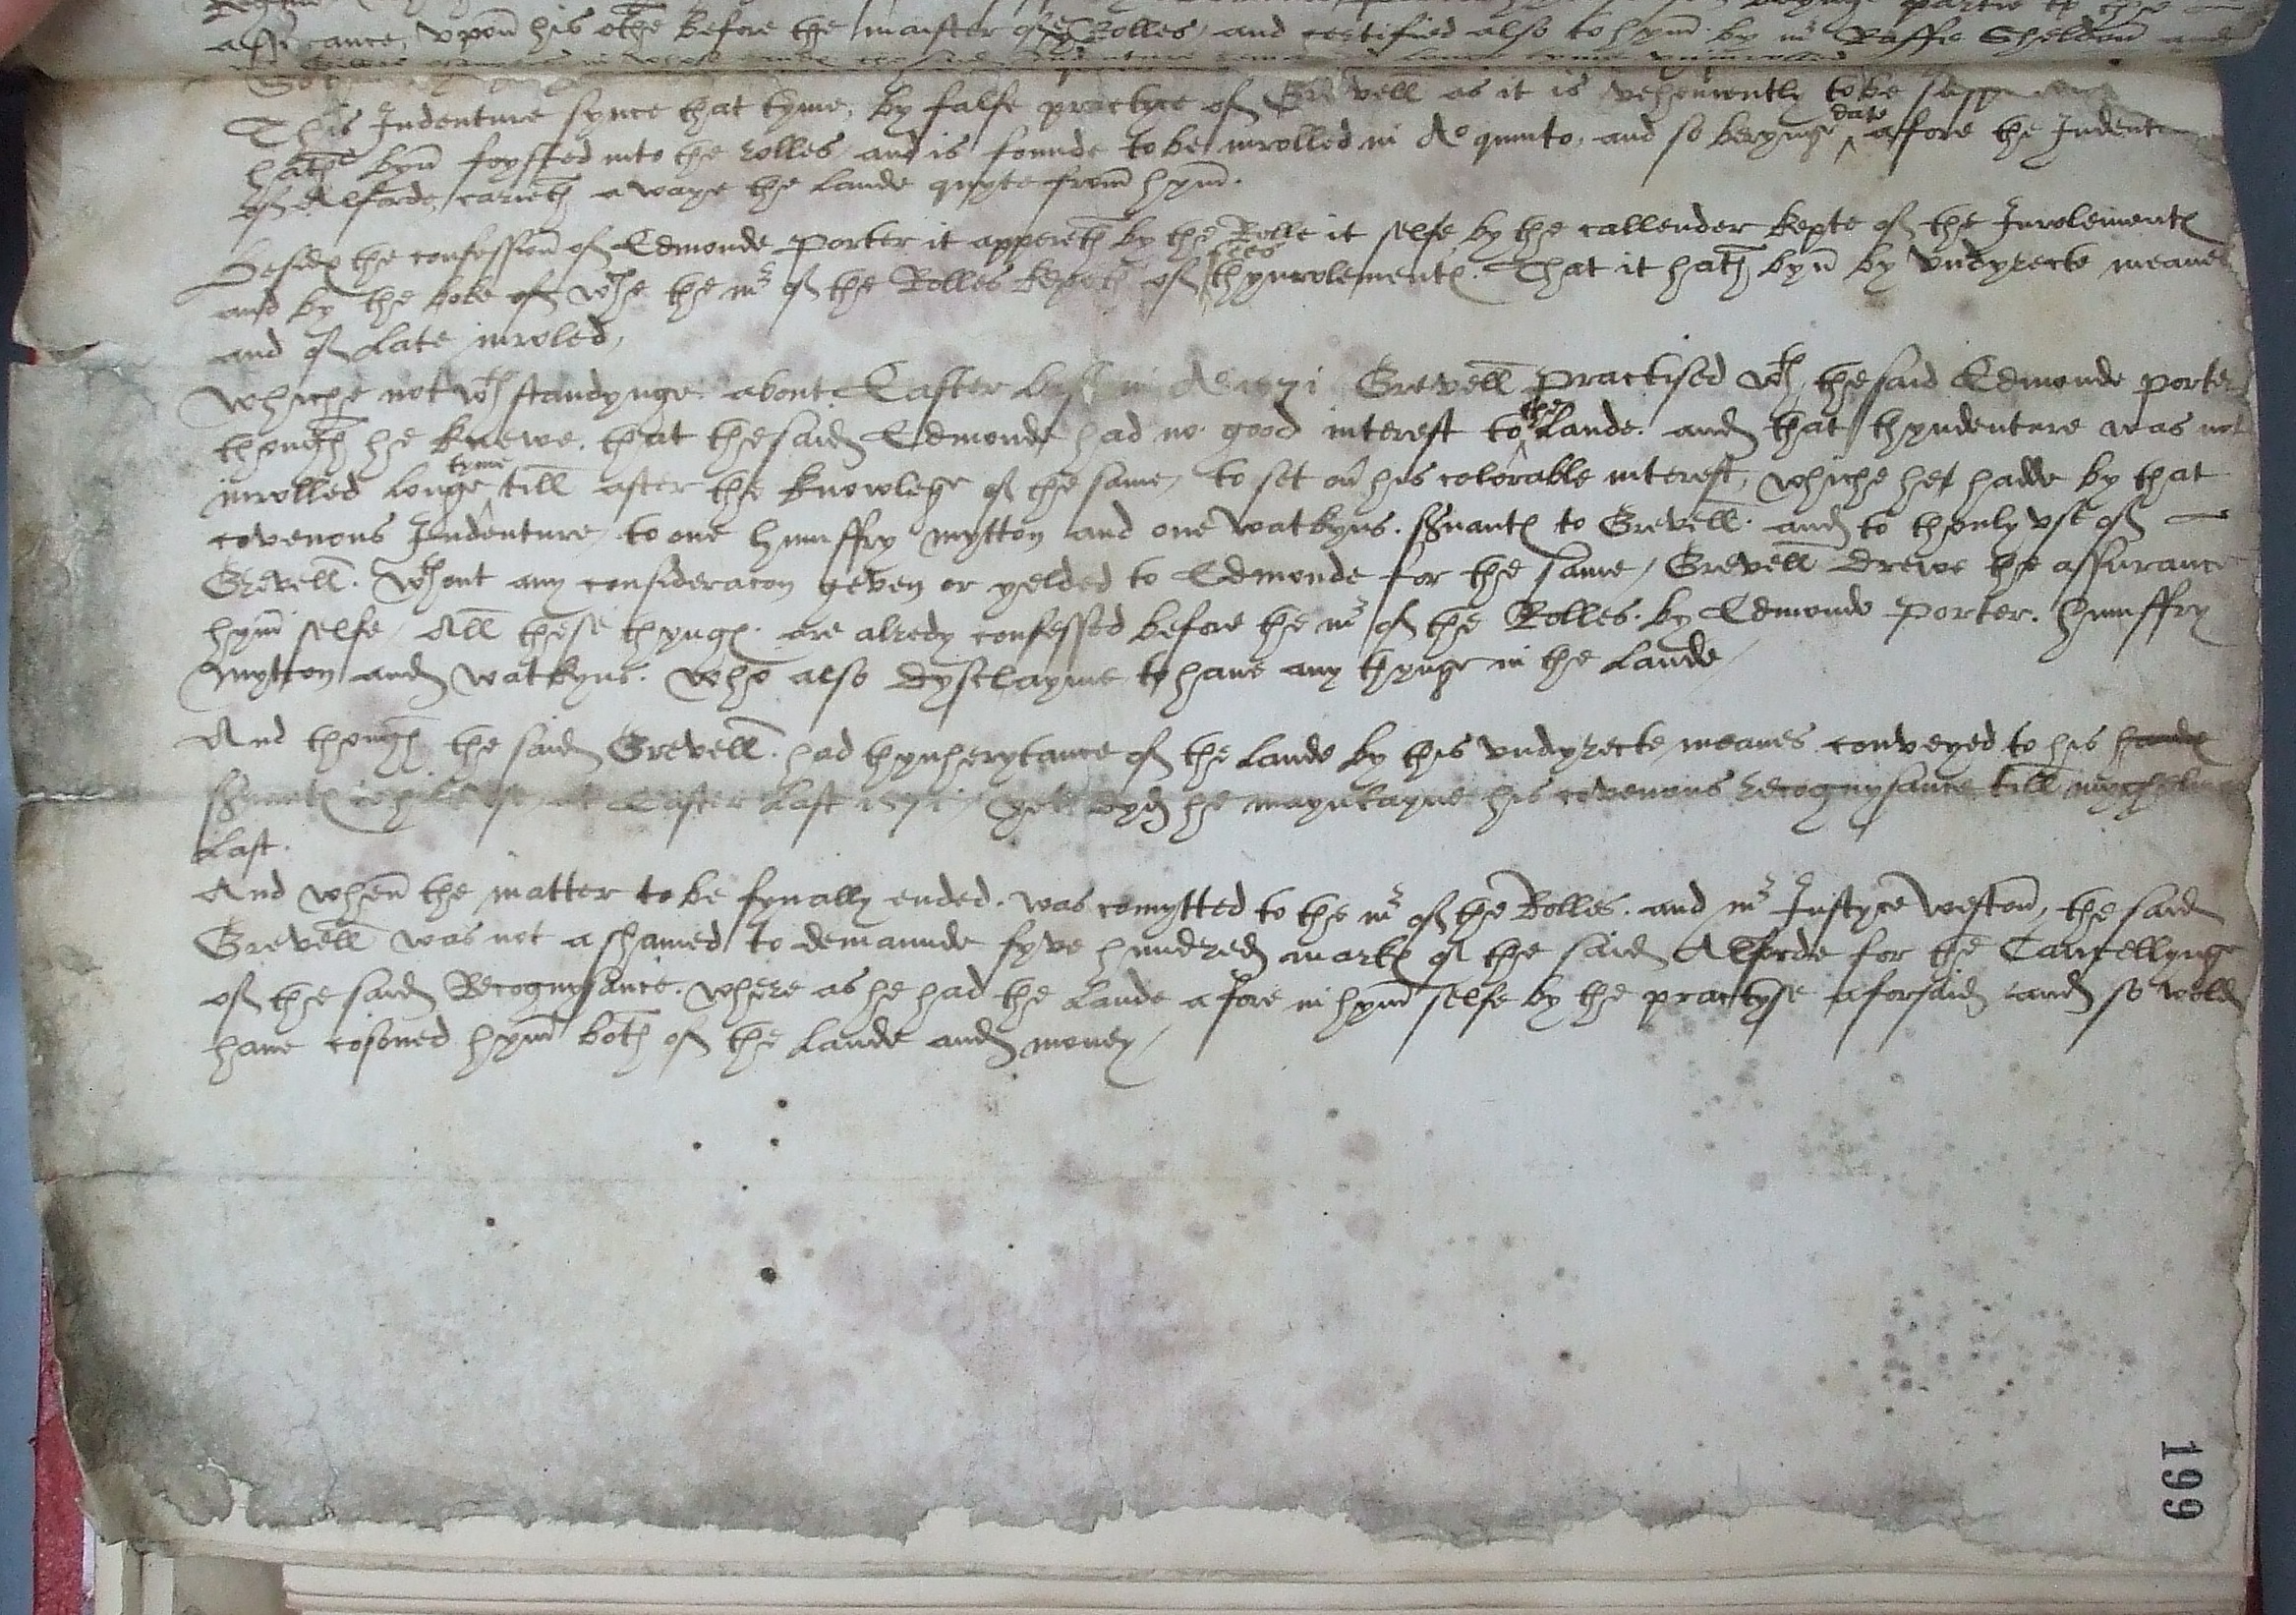 assurance, vpon his othe before the maister of ye Rolles, and certified also to hym by mr Raffe Sheldon and
This Indenture synce that tyme, by false practyce of Grevell as it is vehemently to be
hathe byn foysted into the rolles and is founde to be inrolled in Ao quinto, and so berynge date afore the Indent
of Alforde, carieth a waye the lande quyte from hym.
Besides the confession of Edmonde Porter it appereth by the Rolle it selfe by the callender kepte of the Inrolements
and by the boke of wche the mr of the Rolles kepeth of fees thynrolements. That it hath byn by vndyrecte meanes
and of late inroled,
Whiche not wth standynge about Easter last in Ao 1571 Grevell practised wth the said Edmonde porter
though he knewe that the said Edmonde had no good interest to the Lande. and that thyndenture was not
inrolled longe tyme till after the knowlege of the same, to set on his colorable interest, whiche he hadde by that
covenous Indenture, to one humffry mytton and one watkyns. srvants to Grevell. and to thonly vse of
Grevell. wthout any consideracon geven or yelded to Edmonde for the same, Grevell drewe the assurance
hym selfe, All these thynges are alredy confessed before the mr of the Rolles. by Edmonde Porter. humffry
Mytton and watkyns. who also dysclayme to have any thynge in the lande,
And though the said Grevell. had thynherytance of the lande by this vndyrecte meanes conveyed to his handes
srvants at Easter last 1571, yet dyd he mayntayne his covenous recognysance till
last.
And when the matter to be fynally ended. was comytted to the mr of the Rolles. and mr Justyce weston, the said
Grevell was not ashamed to demaunde fyve hundred marks of the said Alforde for the Cancellynge
of the said Recognysance. where as he had the lande afore in hym selfe by the practyse aforsaid and so wold
have cosoned hym both of the lande and money,
199